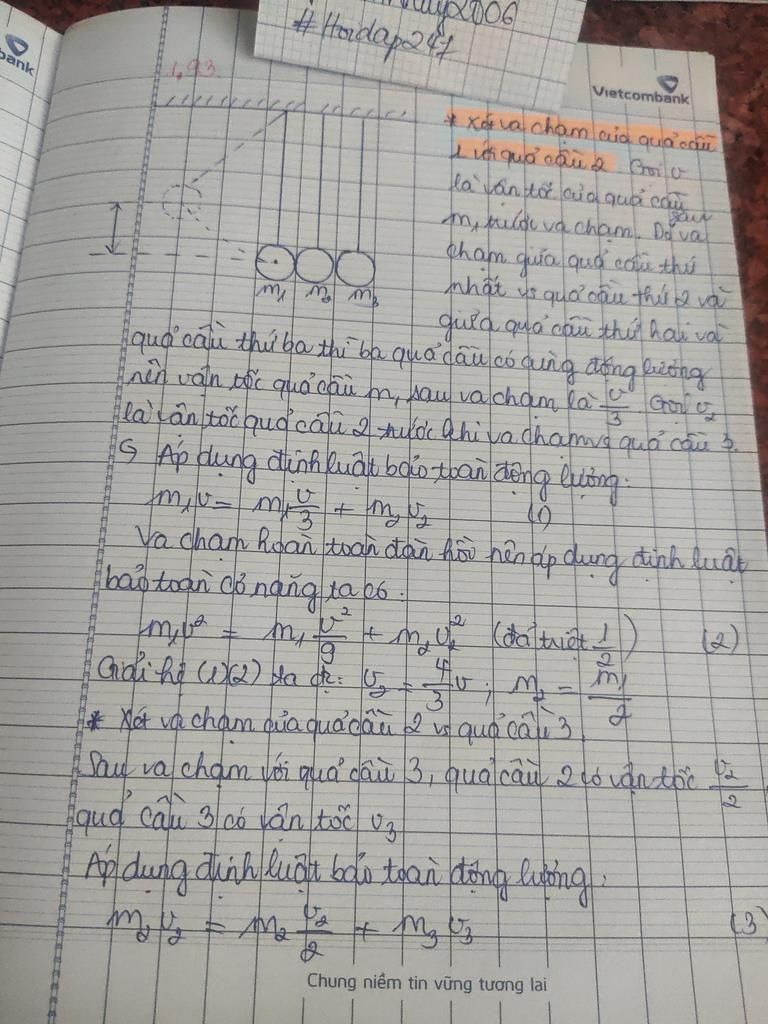 2006
#Hoidap247
bank
Vietcombank
1,93
* Xét va chạm của quả cầu
1 với quả cầu 2. Gọi v
là vận tốc của quả cầu
m₁ trước va chạm. Do sau va
chạm giữa quả cầu thứ
nhất vs quả cầu thứ 2 và
giữa quả cầu thứ hai và
m₁ m₂ m₃
quả cầu thứ ba thì ba quả cầu có cùng động lượng
nên vận tốc quả cầu m₁ sau va chạm là v/3. Gọi v₂
là vận tốc quả cầu 2 trước khi va chạm vs quả cầu 3.
Áp dụng định luật bảo toàn động lượng:
m₁v = m₁ v/3 + m₂v₂ (1)
Va chạm hoàn toàn đàn hồi nên áp dụng định luật
bảo toàn cơ năng ta có:
m₁v² = m₁ v²/9 + m₂v₂² (đã triệt 1/2) (2)
Giải hệ (1)(2) ta đc: v₂ = 4/3 v; m₂ = m₁/2
* Xét va chạm của quả cầu 2 vs quả cầu 3
Sau va chạm với quả cầu 3, quả cầu 2 có vận tốc v₂/2
quả cầu 3 có vận tốc v₃
Áp dụng định luật bảo toàn động lượng:
m₂v₂ = m₂ v₂/2 + m₃v₃ (3)
Chung niềm tin vững tương lai